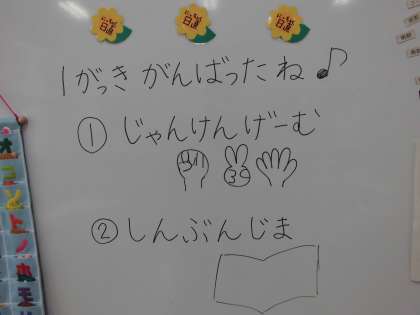 1がっきがんばったね♪
①じゃんけんげーむ
②しんぶんじま